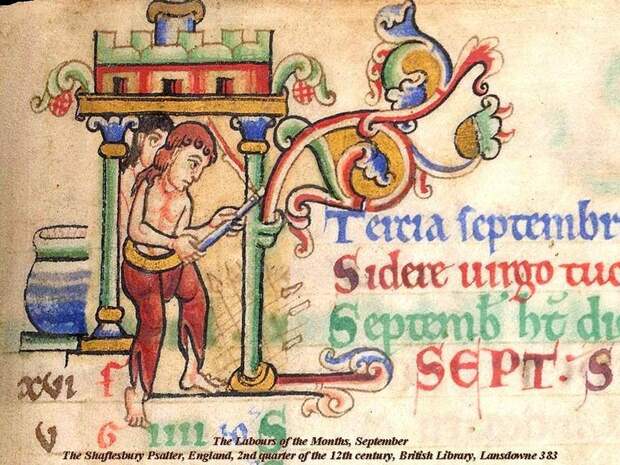 Tercia septembr
Sidere uirgo tuo
Septemb ht di
SEPT. S
xvi f
v G iiii no S
The Labours of the Months, September
The Shaftesbury Psalter, England, 2nd quarter of the 12th century, British Library, Lansdowne 383